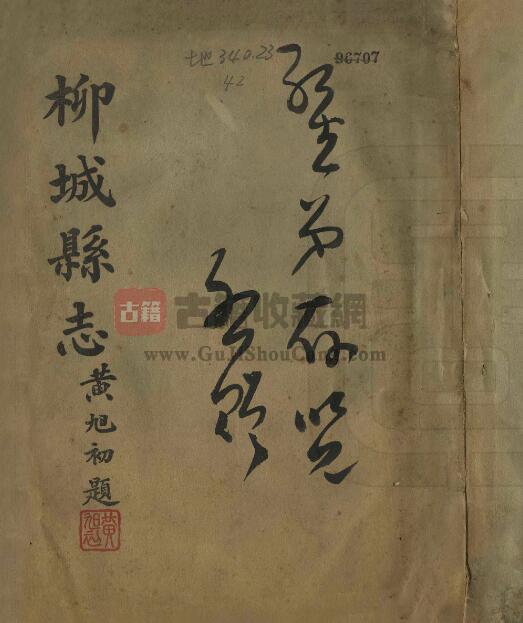 地340.23
42
96707
弟存览
柳城縣志
黃旭初題
黃旭初
古籍
古籍收藏網
www.GuJiShouCang.com